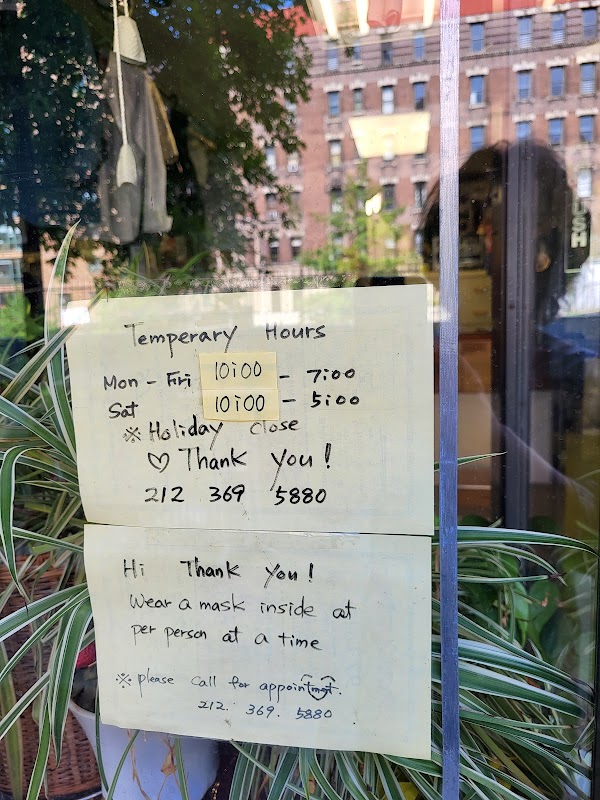 Temperary Hours
Mon - Fri 10:00 - 7:00
Sat 10:00 - 5:00
※ Holiday Close
♡ Thank you!
212 369 5880
Hi Thank you!
Wear a mask inside at
per person at a time
※ please call for appointmet.
212. 369. 5880